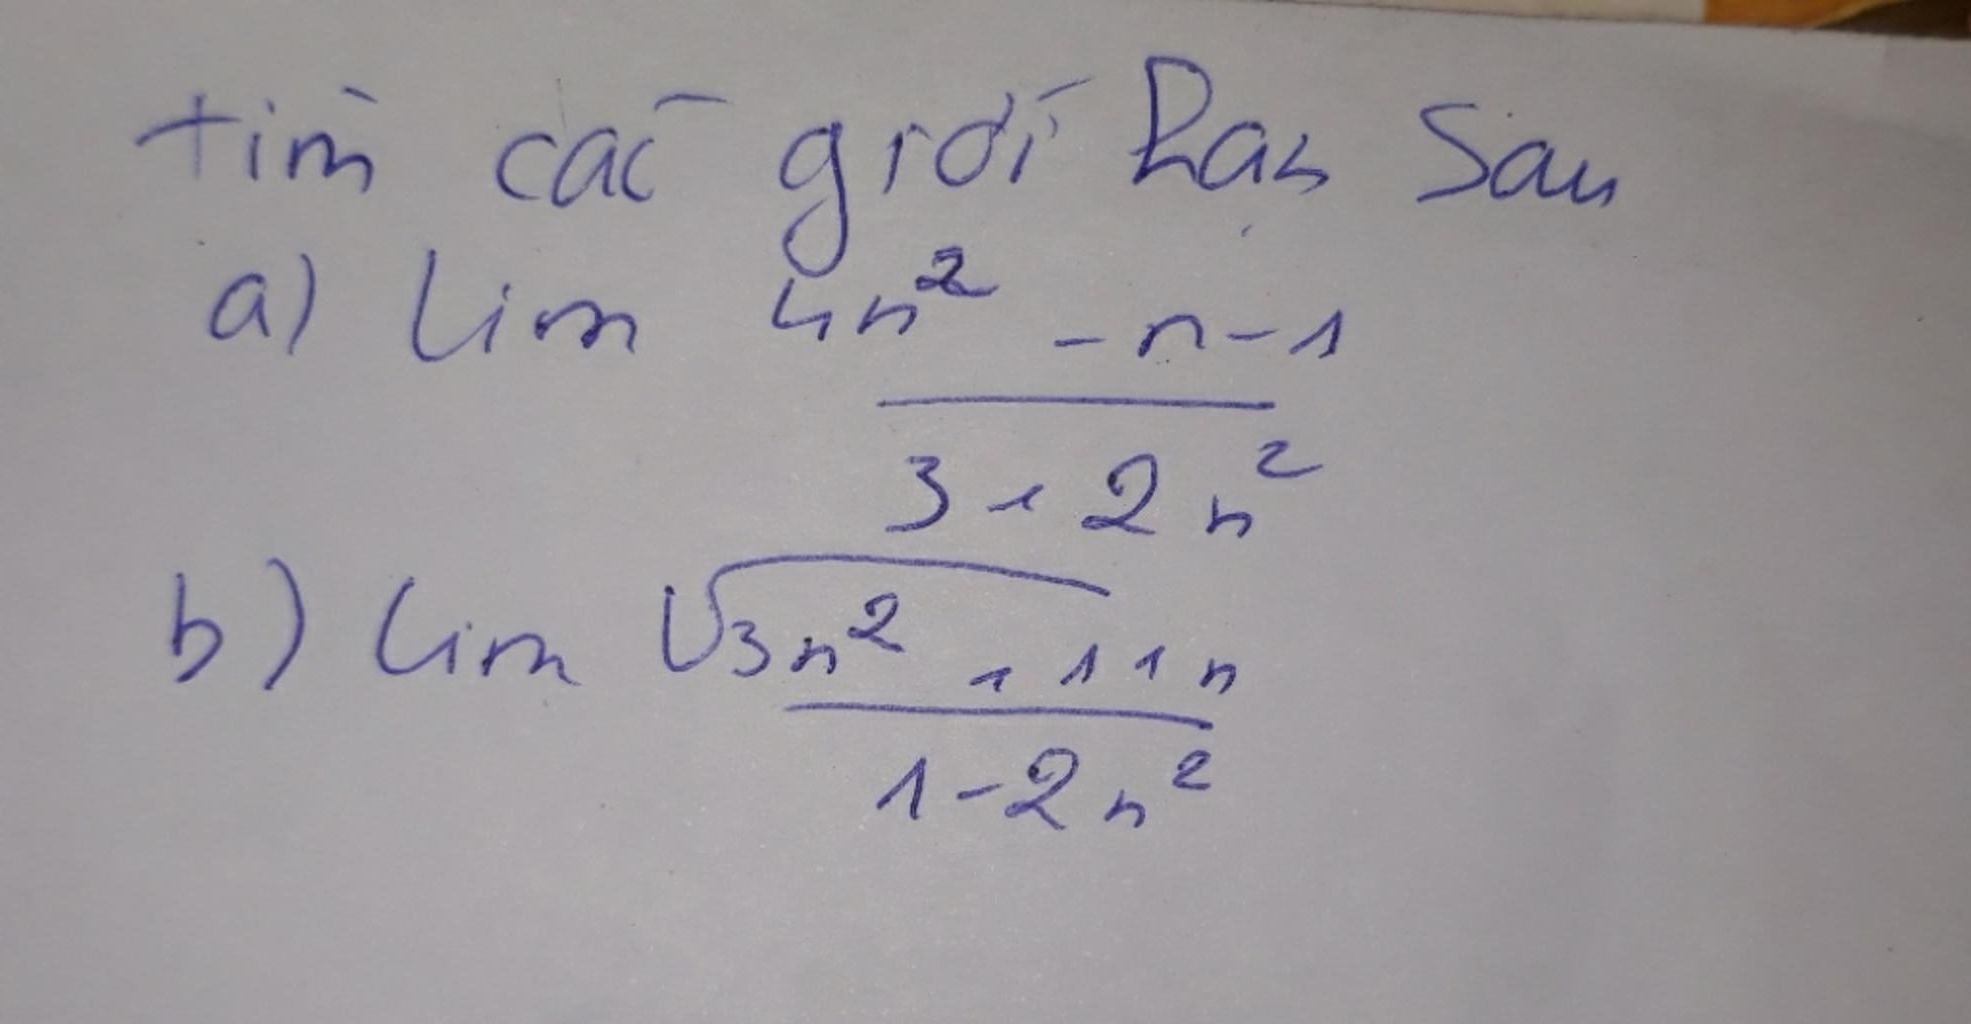 tìm các giới hạn sau
a) lim 4n² - n - 1
3 + 2n²
b) lim √3n² + 11n
1 - 2n²